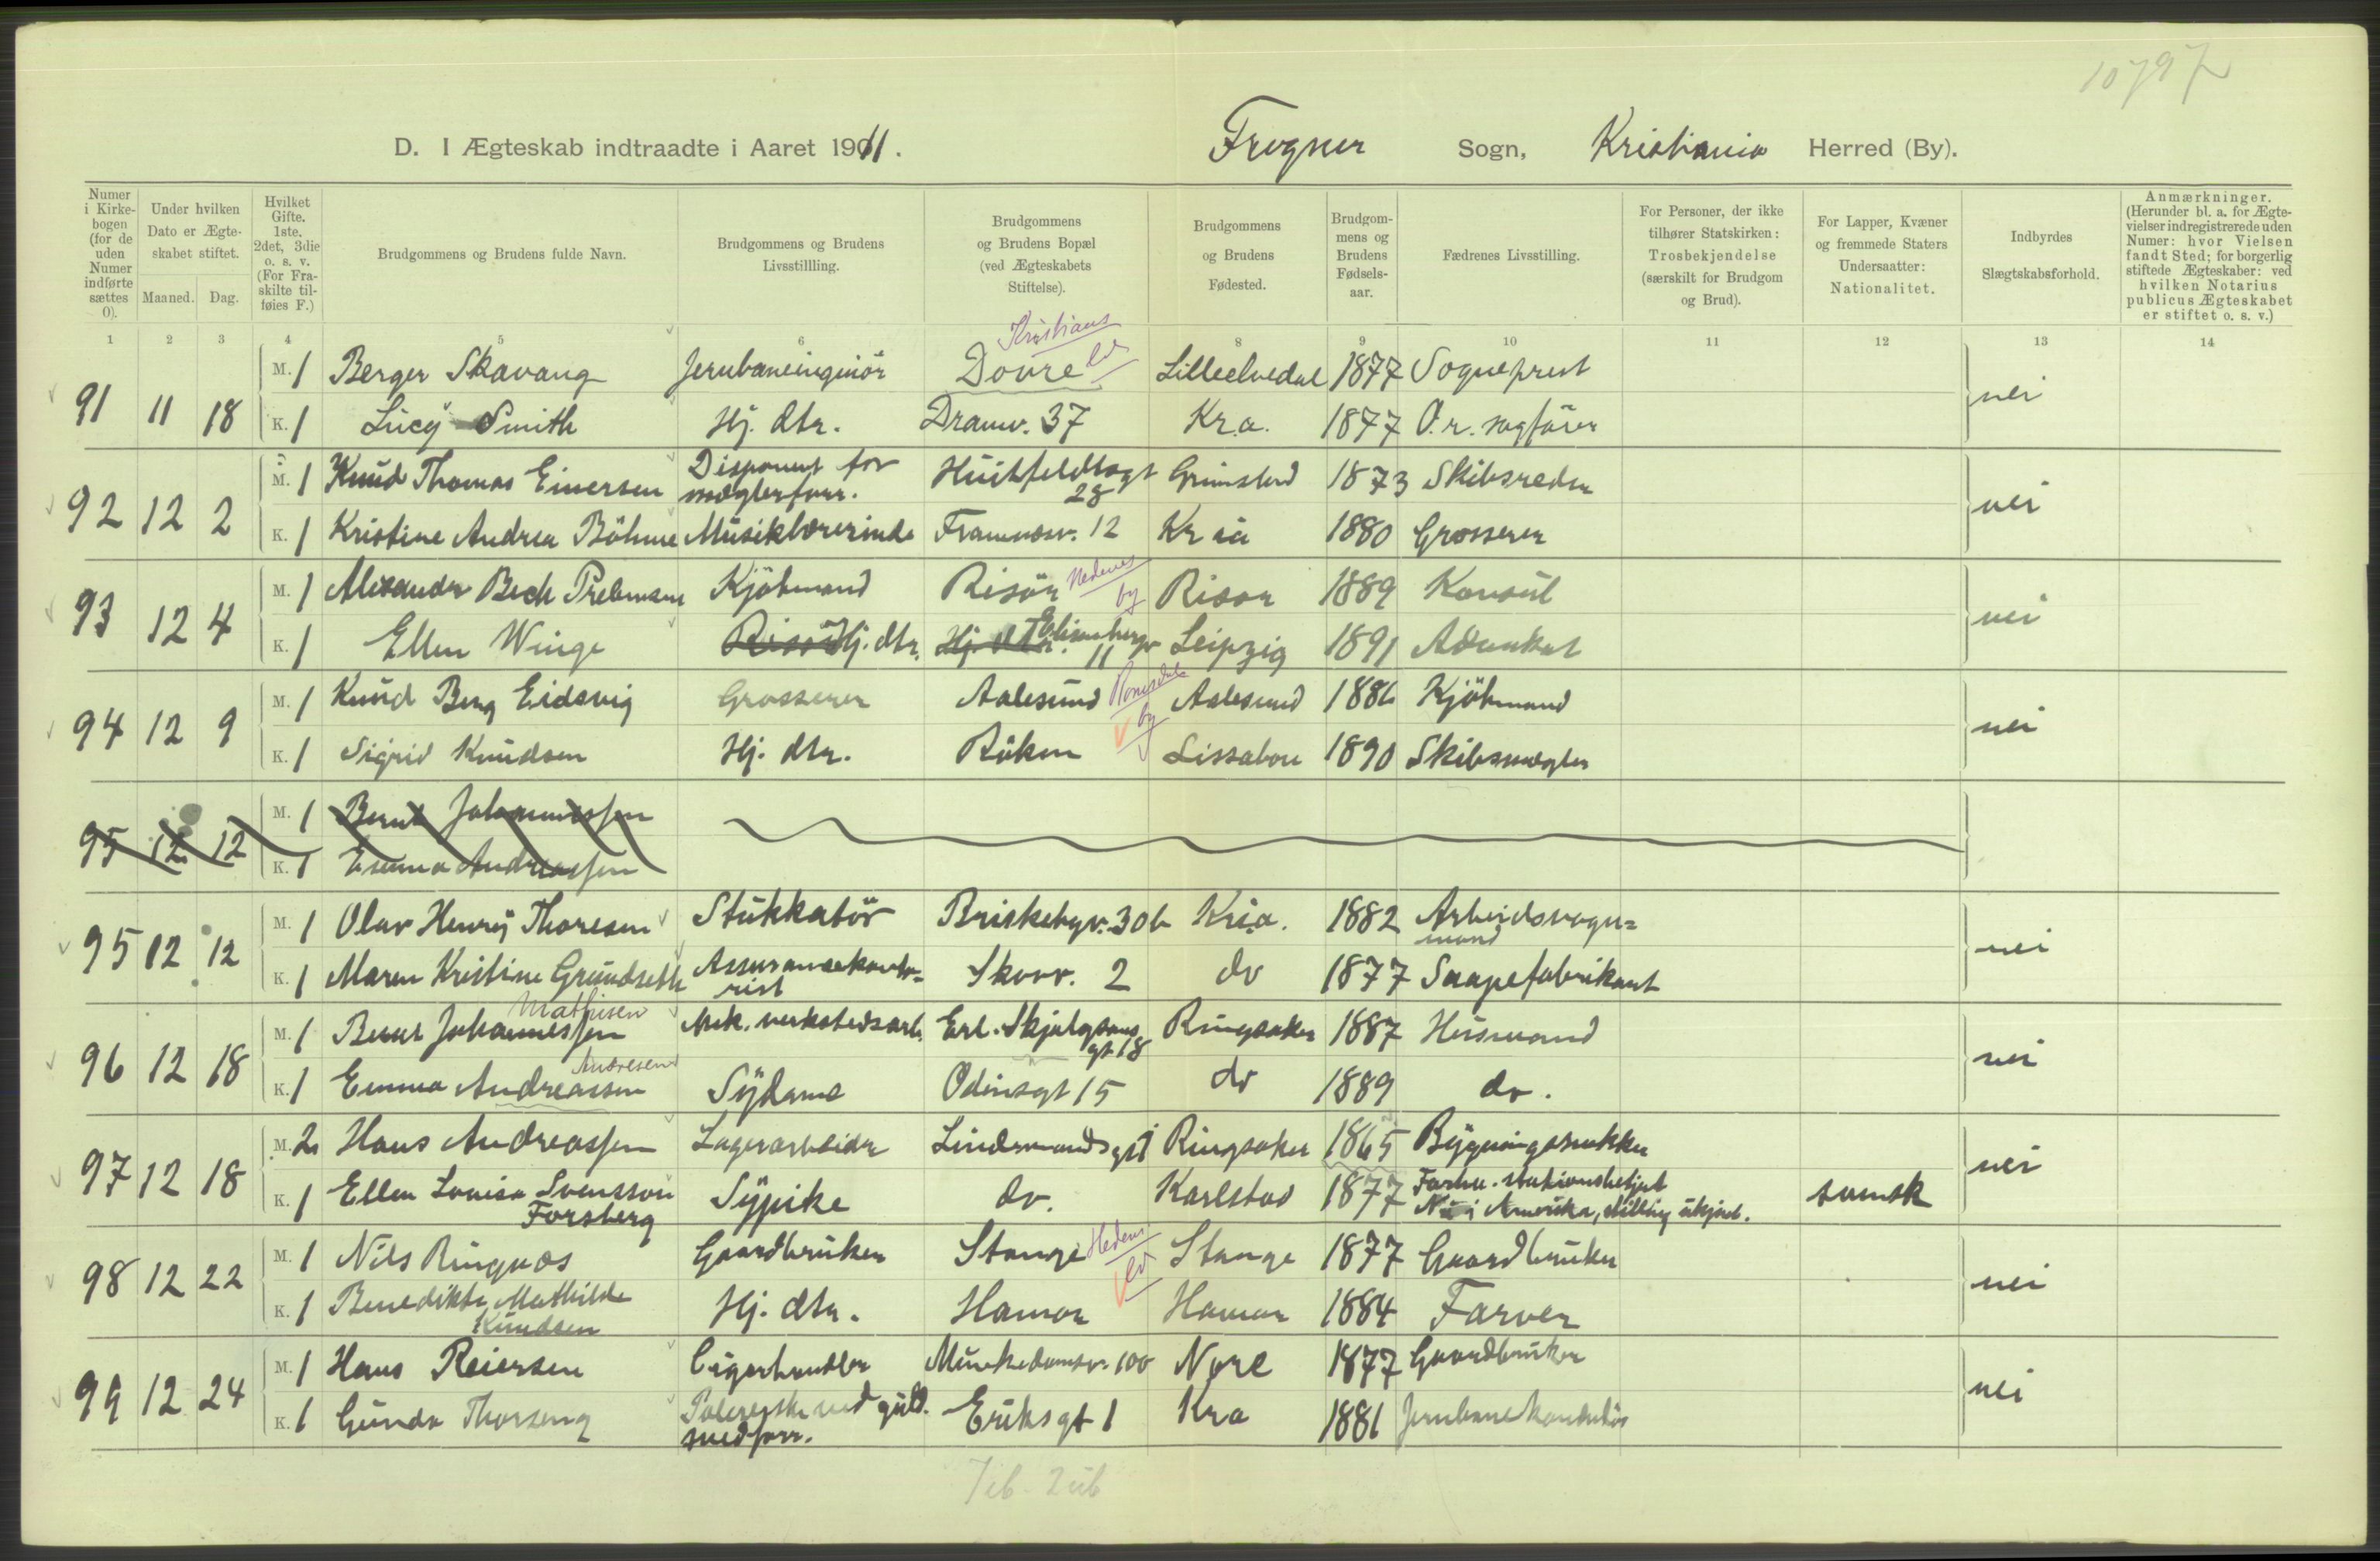 10797
D. I Ægteskab indtraadte i Aaret 1911. Frogner Sogn, Kristiania Herred (By).
Numer i Kirkebogen (for de uden Numer indførte sættes 0).
Under hvilken Dato er Ægteskabet stiftet.
Maaned. Dag.
Hvilket Gifte. 1ste, 2det, 3die o. s. v. (For Fraskilte tilføies F.)
Brudgommens og Brudens fulde Navn.
Brudgommens og Brudens Livsstillling.
Brudgommens og Brudens Bopæl (ved Ægteskabets Stiftelse).
Brudgommens og Brudens Fødested.
Brudgommens og Brudens Fødselsaar.
Fædrenes Livsstilling.
For Personer, der ikke tilhører Statskirken: Trosbekjendelse (særskilt for Brudgom og Brud).
For Lapper, Kvæner og fremmede Staters Undersaatter: Nationalitet.
Indbyrdes Slægtskabsforhold.
Anmærkninger. (Herunder bl. a. for Ægtevielser indregistrerede uden Numer: hvor Vielsen fandt Sted; for borgerlig stiftede Ægteskaber: ved hvilken Notarius publicus Ægteskabet er stiftet o. s. v.)
1 2 3 4 5 6 8 9 10 11 12 13 14
91 11 18 M. 1 Berger Skavang Jernbaneingeniör Dovre Kristians ld Lilleelvedal 1877 Sogneprest nei
K. 1 Lucy Smith Hj. dtr. Dramv. 37 Kr.a. 1877 O.r. sagförer
92 12 2 M. 1 Knud Thomas Einersen Disponent for mæglerforr. Huitfeldtsgt 28 Grimstad 1873 Skibsreder nei
K. 1 Kristine Andrea Böhme Musiklærerinde Framnæsv. 12 Kr ia 1880 Grosserer
93 12 4 M. 1 Alexander Bech Prebensen Kjöbmand Risör Nedenes by Risör 1889 Konsul nei
K. 1 Ellen Winge Risör Hj. dtr. Hj. dtr. Elisenbergv 11 Leipzig 1891 Advokat
94 12 9 M. 1 Knud Berg Eidsvig Grosserer Aalesund Romsdals by Aalesund 1886 Kjöbmand nei
K. 1 Sigrid Knudsen Hj. dtr. Röken Lissabon 1890 Skibsmægler
95 12 12 M. 1 Bernt Johannessen
K. 1 Emma Andreassen
95 12 12 M. 1 Olav Henry Thoresen Stukkatör Briskebyv. 30b Kria. 1882 Arbeidsvogn= mand nei
K. 1 Maren Kristine Grundseth Assurancekonto= rist Skovv. 2 do 1877 Saapefabrikant
96 12 18 M. 1 Bernt Johannessen Mathisen Mek. verkstedsarb. Erl. Skjalgsons gt 18 Ringsaker 1887 Husmand nei
K. 1 Emma Andreassen Andresen Sydame Odinsgt 15 do 1889 do.
97 12 18 M. 2 Hans Andreassen Lagerarbeider Lindemandsgt 1 Ringsaker 1865 Bygningssnekker nei
K. 1 Ellen Lovisa Svensson Forsberg Sypike do. Karlstad 1877 Forhv. stationsbetjent Nu i Amerika, stilling ukjent. svensk
98 12 22 M. 1 Nils Ringnæs Gaardbruker Stange Hedem. ld Stange 1877 Gaardbruker nei
K. 1 Benedikte Mathilde Knudsen Hj. dtr. Hamar Hamar 1884 Farver
99 12 24 M. 1 Hans Reiersen Cigarhandler Munkedamsv. 100 Nore 1877 Gaardbruker nei
K. 1 Gunda Thorseng Polererske ved guld= smedforr. Eriksgt 1 Kra 1881 Jernbanekonduktör
7 ib. 2 ub